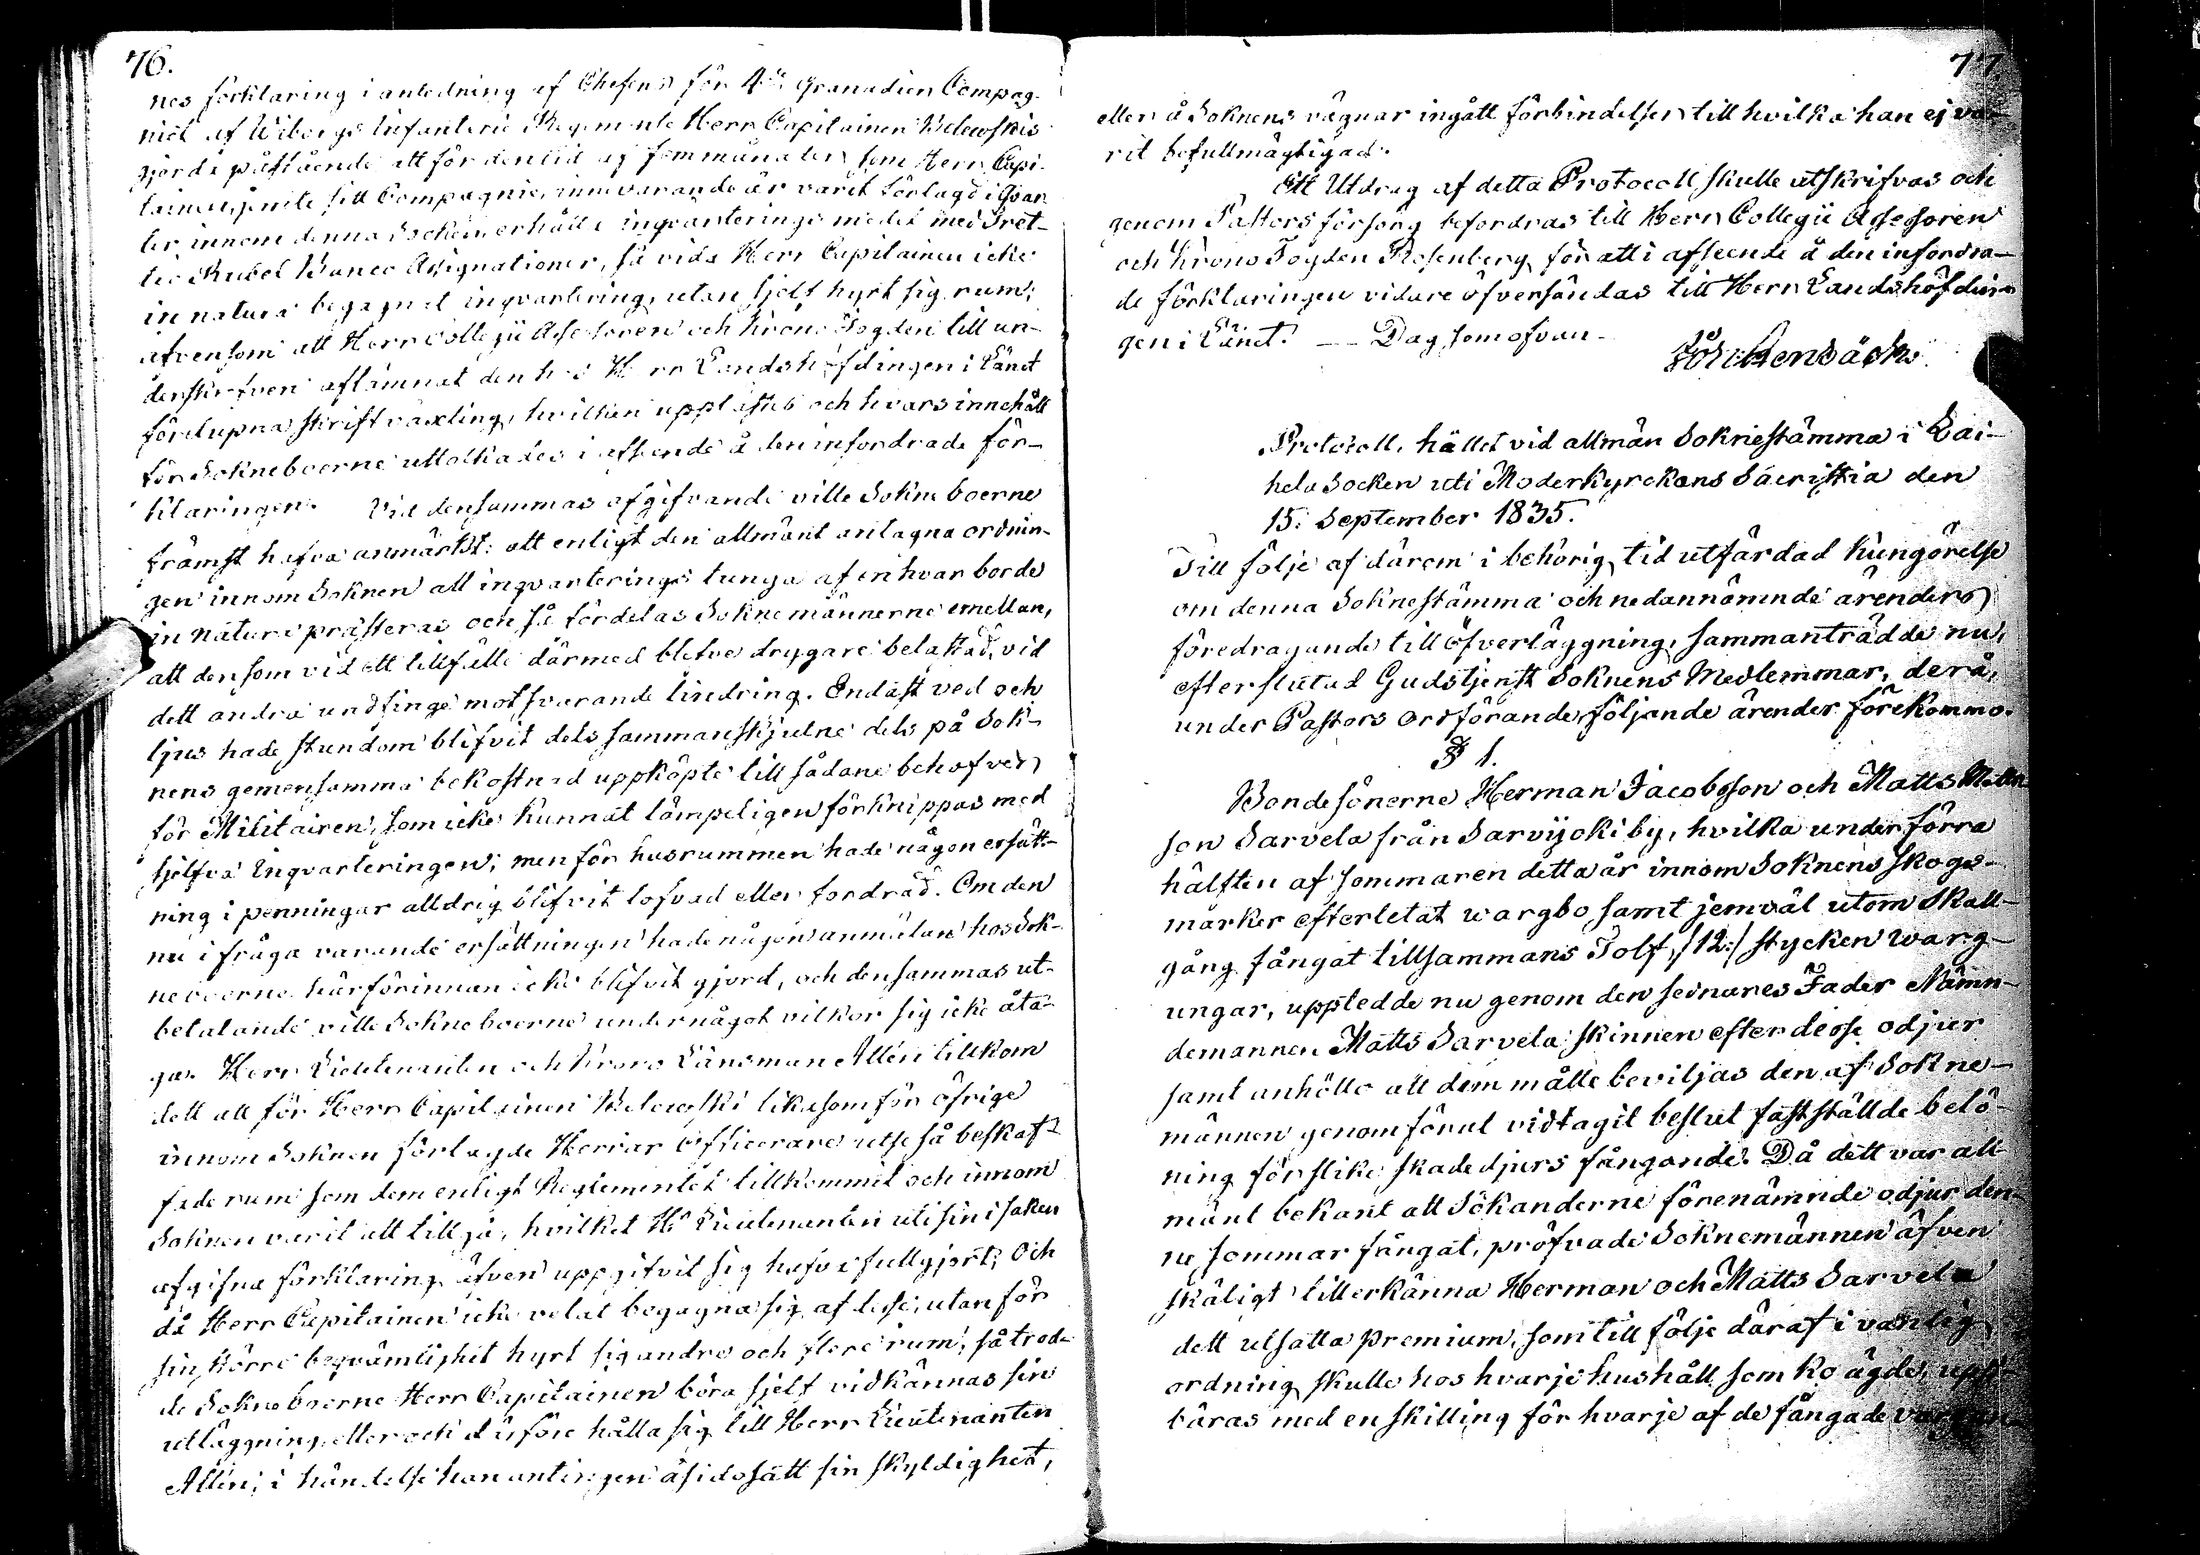 76.
nes förklaring i anledning af Chefens för 4de Granadier Compag-
niet af Wiborgs Infanterie Regemente Herr Capitainen Belewskis
gjorda påstående att för den tid af fem månader, som Herr Capi-
tainen, jemte sitt Compagnie, innevarande år varit förlagd i Qvar-
ter innom denna Socken erhålla inqvarterings medel med Tret-
tio Rubel Banco Assignationer, så vida Herr Capitainen icke
in natura begagnat inqvartering, utan sjelf hyrt sig rum;
äfvensom att Herr Collegii Assessoren och Krono Fogden till un-
derskrifven aflämnat den hos Herr Landshöfdingen i Länet
förelupna skriftväxling, hvilken upplästes och hvars innehåll
för Sokneboerne uttolkades i afseende å den infordrade för-
klaringen. Vid densammas afgifvande ville Sokneboerne
främst hafva anmärkt: att enligt den allmänt antagna ordnin-
gen innom Soknen all inqvarterings tunga af en hvar borde
in natura præsteras och så fördelas Soknemännerne emellan,
att den som vid ett tillfälle därmed blefve drygare belastad, vid
dett andra undfinge motsvarande lindring. Endast ved och
ljus hade stundom blifvit dels sammanskjutne dels på Sok-
nens gemensamma bekostnad uppköpte till sådane behofver
för Militairen, som icke kunnat lämpeligen förknippas med
sjelfva Inqvarteringen; men för husrummen hade någon ersätt-
ning i penningar alldrig blifvit lofvad eller fordrad. Om den
nu i fråga varande ersättningen hade någon anmälan hos Sok-
neboerne härförinnan icke blifvit gjord, och densammas ut-
betalande ville Sokneboerne under något vilkor sig icke åta-
ga. Herr Lieutenanten och Krono Länsman Allén tillkom
dett att för Herr Capitainen Belewski likasom för öfrige
innom Soknen förlagde Herrar Officerare utse så beskaf-
fade rum som dem enligt Reglementet tillkommit och innom
Soknen varit att tillgå, hvilket Hr Lieutenanten uti sin i saken
afgifna förklaring äfven uppgifvit sig hafva fullgjort; Och
då Herr Capitainen icke velat begagna sig af desse, utan för
sin större beqvämlighet hyrt sig andra och flere rum; så trod-
de Sokneboerne Herr Capitainen böra sjelf vidkännas sin
utläggning, eller och därföre hålla sig till Herr Lieutenanten
Allén, i händelse han antingen åsidosatt sin skyldighet,
77.
eller å Soknens vägnar ingått förbindelser till hvilka han ej va-
rit befullmägtigad.
Ett Utdrag af detta Protocoll skulle utskrifvas och
genom Pastors försorg befordras till Herr Collegii Assessoren
och Krono Fogden Rosenberg, för att i afseende å den infordra-
de förklaringen vidare öfversändas till Herr Landshöfdin-
gen i Länet. -- Dag som ofvan-
Protocoll, hållet vid allmän Soknestämma i Lai-
hela Socken uti Moderkyrckans Sacristia den
15. September 1835.
Till följe af därom i behörig tid utfärdad Kungörelse
om denna Soknestämma och nedannämnde ärenders
föredragande till öfverläggning, sammanträdde nu,
efter slutad Gudstjenst Soknens Medlemmar, derå,
under Pastors ordförande, följande ärender förekommo.
§ 1.
Bondesönerne Herman Jacobsson och Matts Matts-
son Sarvela från Sarvijoki by, hvilka under förra
hälften af sommaren detta år innom Soknens skogs-
marker efterletat wargbo samt jemväl utom Skall-
gång fångat tillsammans Tolf /12:/ stycken warg-
ungar, uppledde nu genom den seinares Fader Nämn-
demannen Matts Sarvela skinnen efter desse odjur
samt anhöllo att dem måtte beviljas den af Sokne-
männen genom förut vidtagit beslut fastställde belö-
ning för slike skadedjurs fångande. Då dett var all-
mänt bekant att Sökanderne förenämnde odjur den-
ne sommar fångat, pröfvade Soknemännen äfven
skäligt tillerkänna Herman och Matts Sarvela
dett utsatta premium, som till följe däraf i vanlig
ordning skulle hos hvarje hushåll som ko ägde, upp-
bäras med en skilling för hvarje af de fångade